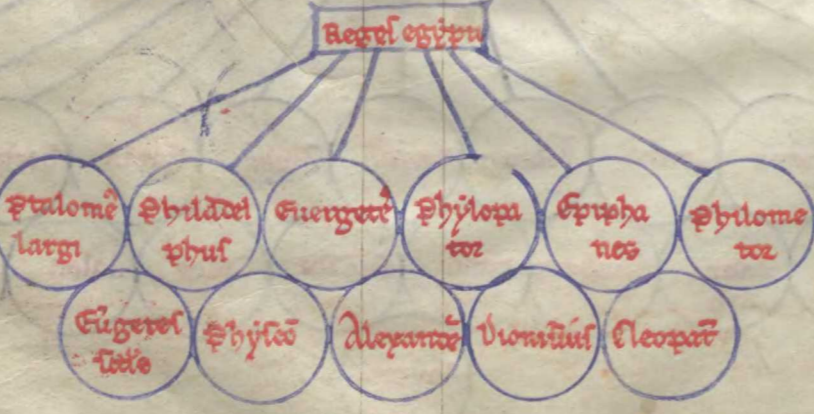 Regeſ egẏpti
Ptalomē
largi
Philadel
phuſ
Euergetē
Phẏlopa
tor
Epipha
nes
Philome
tor
Eūgeteſ
Phẏſcō
Alexandē
Dioniſiuſ
Cleopat̄